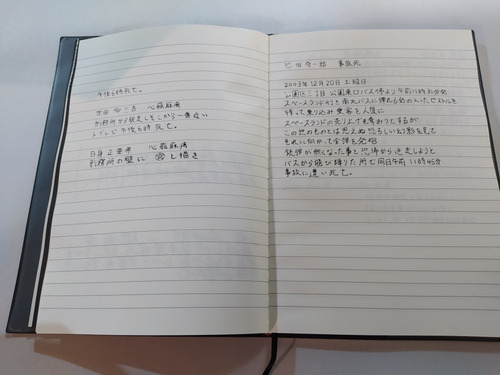 午後6時死亡。
心臓麻痺
刑務所から脱走しそこから一番近い
トイレで午後6時死亡。
心臓麻痺
刑務所の壁に と描き
事故死
2003年12月20日土曜日
公園区三丁目公園東口バス停より午前11時31分発
スペースランド行き南北バスに弾丸6発の入ったピストルを
持って乗り込み乗客を人質に
スペースランドの売り上げを奪おうとするが
この世のものとは思えぬ恐ろしい幻影を見て
それに向かって全弾を発砲
銃弾が無くなった事と恐怖から逃走しようと
バスから飛び降りた所で同日午前11時45分
事故に遭い死亡。